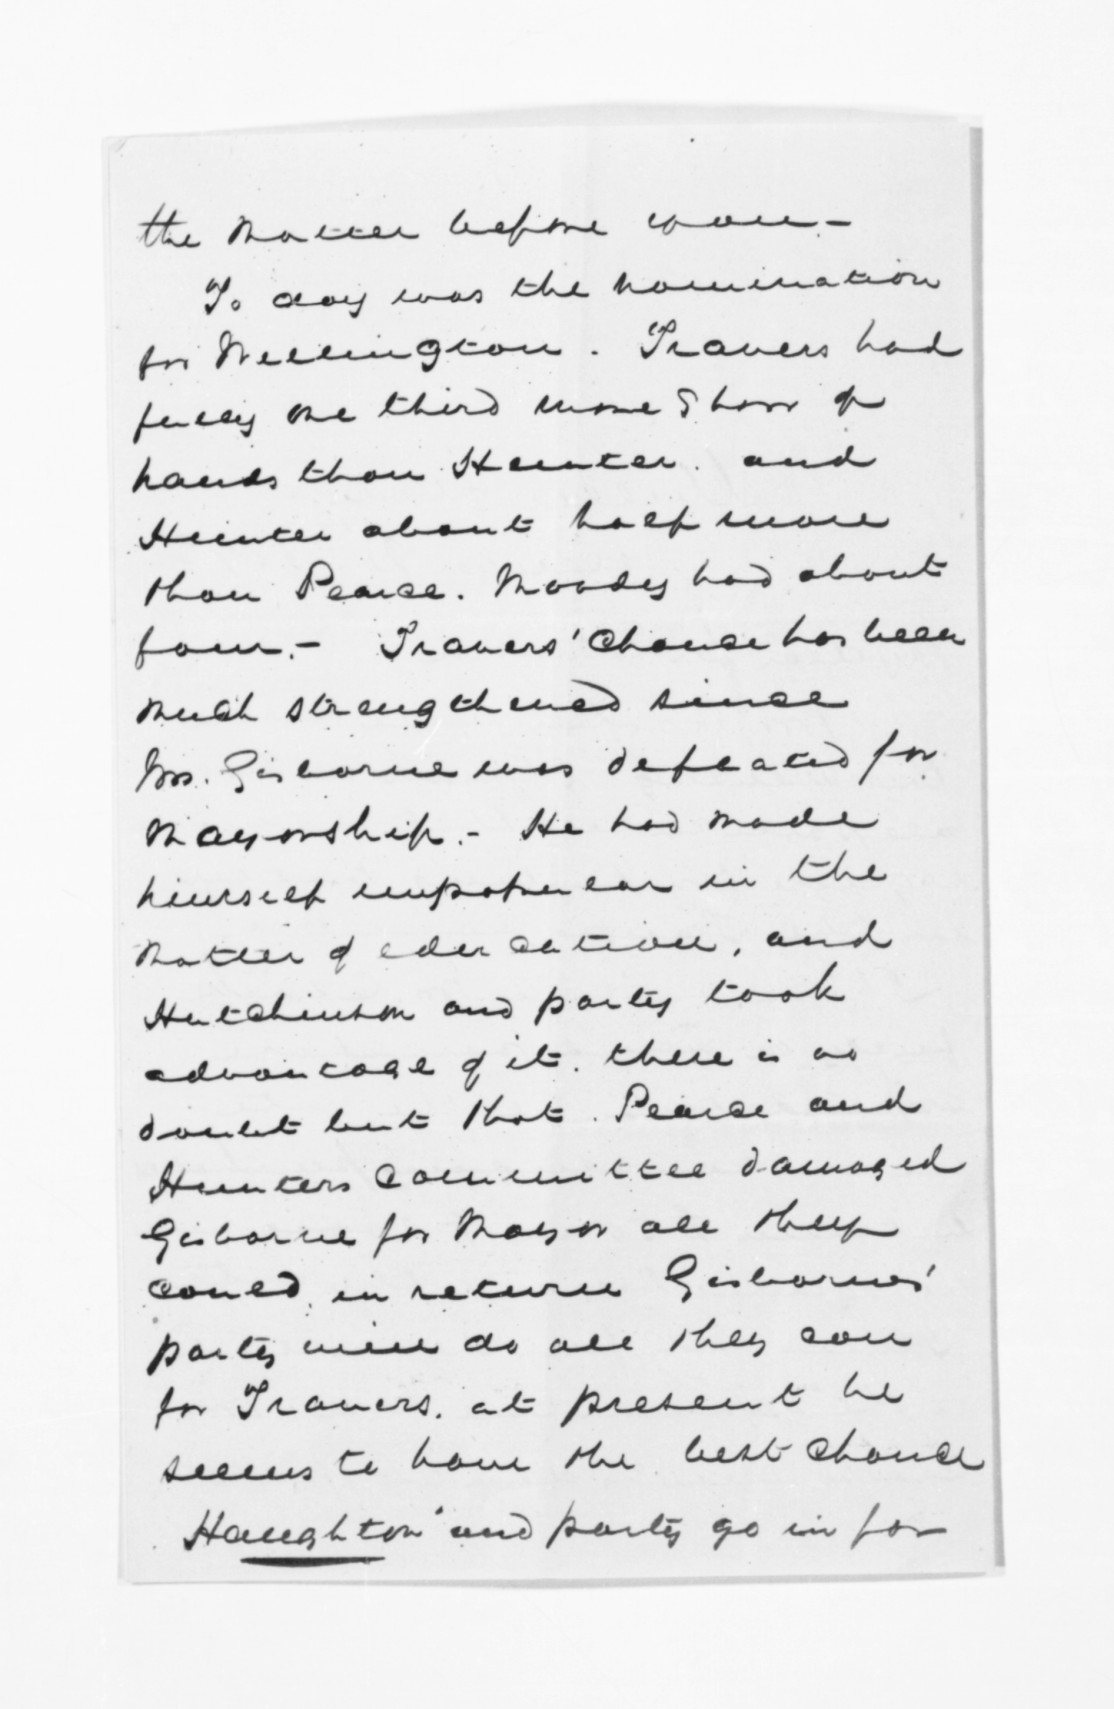 the matter before you. -
To day was the nomination
for Wellington. Travers had
fully one third more Show of
hands than Hunter. and
Hunter about half more
than Pearce. Moody had about
four. - Travers' chance has been
much strengthened since
Mr. Gisborne was defeated for
Mayorship. - He had made
himself unpopular in the
matter of education, and
Hutchinson and party took
advantage of it. there is no
doubt but that. Pearce and
Hunters Committee damaged
Gisborne for Mayor all they
could, in return Gisbornes'
party will do all they can
for Travers. at present he
seems to have the best chance
Haughton and party go in for